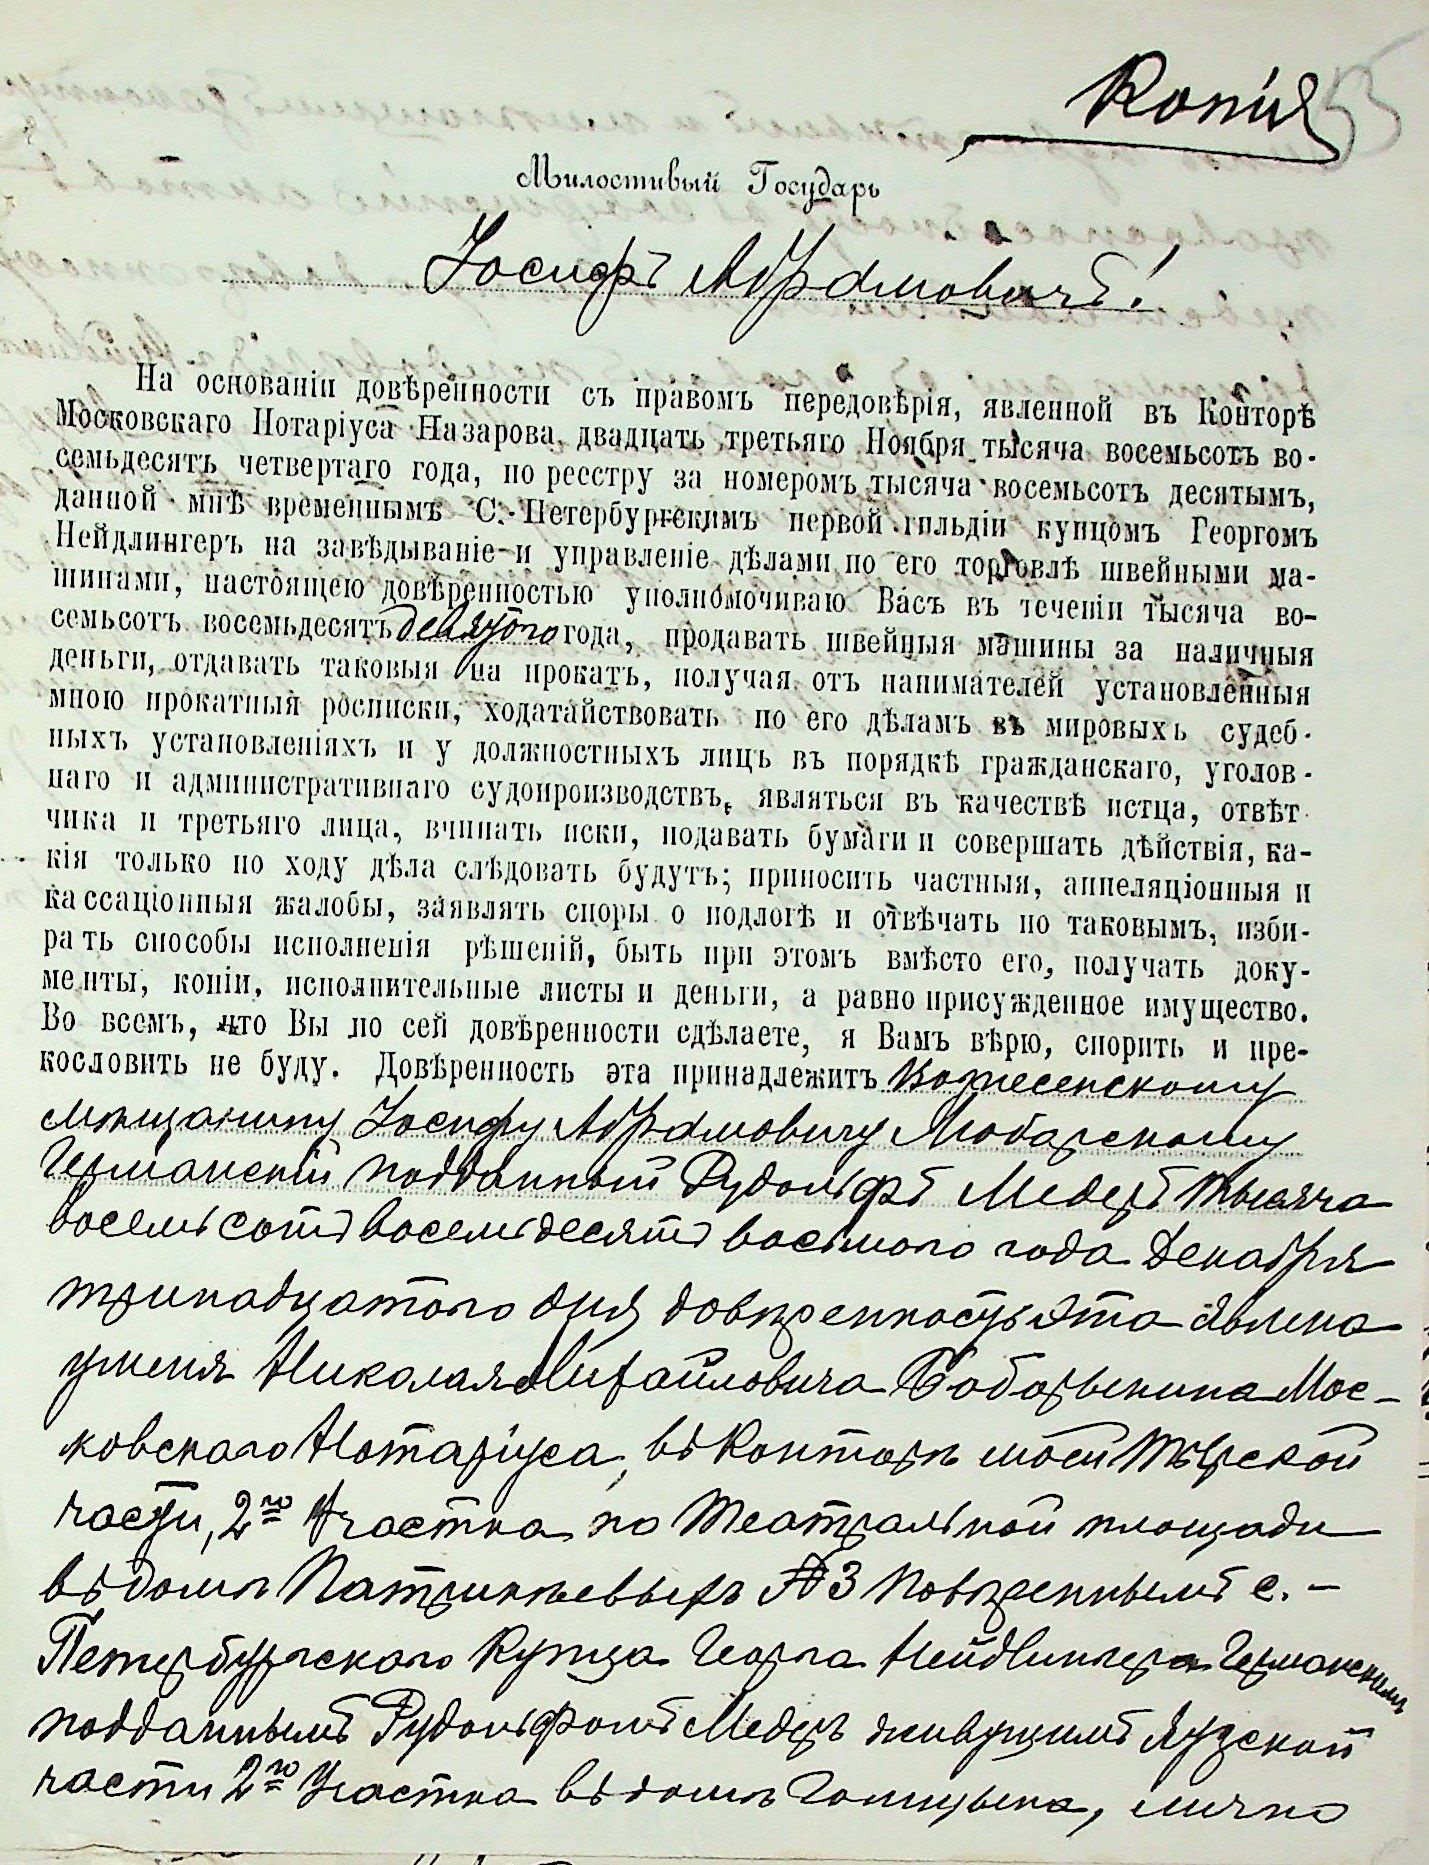 Копія
Милостивый Государь
Іосифъ Абрамовичъ!
На основаніи довѣренности съ правомъ передовѣрія, явленной въ Конторѣ
Московскаго Нотаріуса Назарова двадцать третьяго Ноября тысяча восемьсотъ во-
семьдесятъ четвертаго года, по реестру за номеромъ тысяча восемьсотъ десятымъ,
данной мнѣ временнымъ С.-Петербургскимъ первой гильдіи купцомъ Георгомъ
Нейдлингеръ на завѣдываніе и управленіе дѣлами по его торговлѣ швейными ма-
шинами, настоящею довѣренностью уполномочиваю Васъ въ теченіи тысяча во-
семьсотъ восемьдесятъ девятого года, продавать швейныя машины за наличныя
деньги, отдавать таковыя на прокатъ, получая отъ нанимателей установленныя
мною прокатныя росписки, ходатайствовать по его дѣламъ въ мировыхъ судеб-
ныхъ установленіяхъ и у должностныхъ лицъ въ порядкѣ гражданскаго, уголов-
наго и административнаго судопроизводствъ, являться въ качествѣ истца, отвѣт
чика и третьяго лица, вчинать иски, подавать бумаги и совершать дѣйствія, ка-
кія только по ходу дѣла слѣдовать будутъ; приносить частныя, аппеляціонныя и
кассаціонныя жалобы, заявлять споры о подлогѣ и отвѣчать по таковымъ, изби-
рать способы исполненія рѣшеній, быть при этомъ вмѣсто его, получать доку-
менты, копіи, исполнительные листы и деньги, а равно присужденное имущество.
Во всемъ, что Вы по сей довѣренности сдѣлаете, я Вамъ вѣрю, спорить и пре-
кословить не буду. Довѣренность эта принадлежитъ Вознесенскому
мѣщанину Іосифу Абрамовичу Любарскому
Германскій подданный Рудольфъ Медеръ тысяча
восемьсотъ восемьдесятъ восьмого года Декабря
тринадцатого дня довѣренность эта явлена
у меня Николая Михайловича Боборыкина Мос-
ковского Нотаріуса, въ Конторѣ моей Тверской
части, 2го Участка по Театральной площади
въ домѣ Патрикѣевыхъ № 3 повѣреннымъ С.-
Петербургского Купца Георга Нейдлингера Германскимъ
подданнымъ Рудольфомъ Медеръ живущимъ Яузской
части 2го Участка въ домѣ Голицына, лично